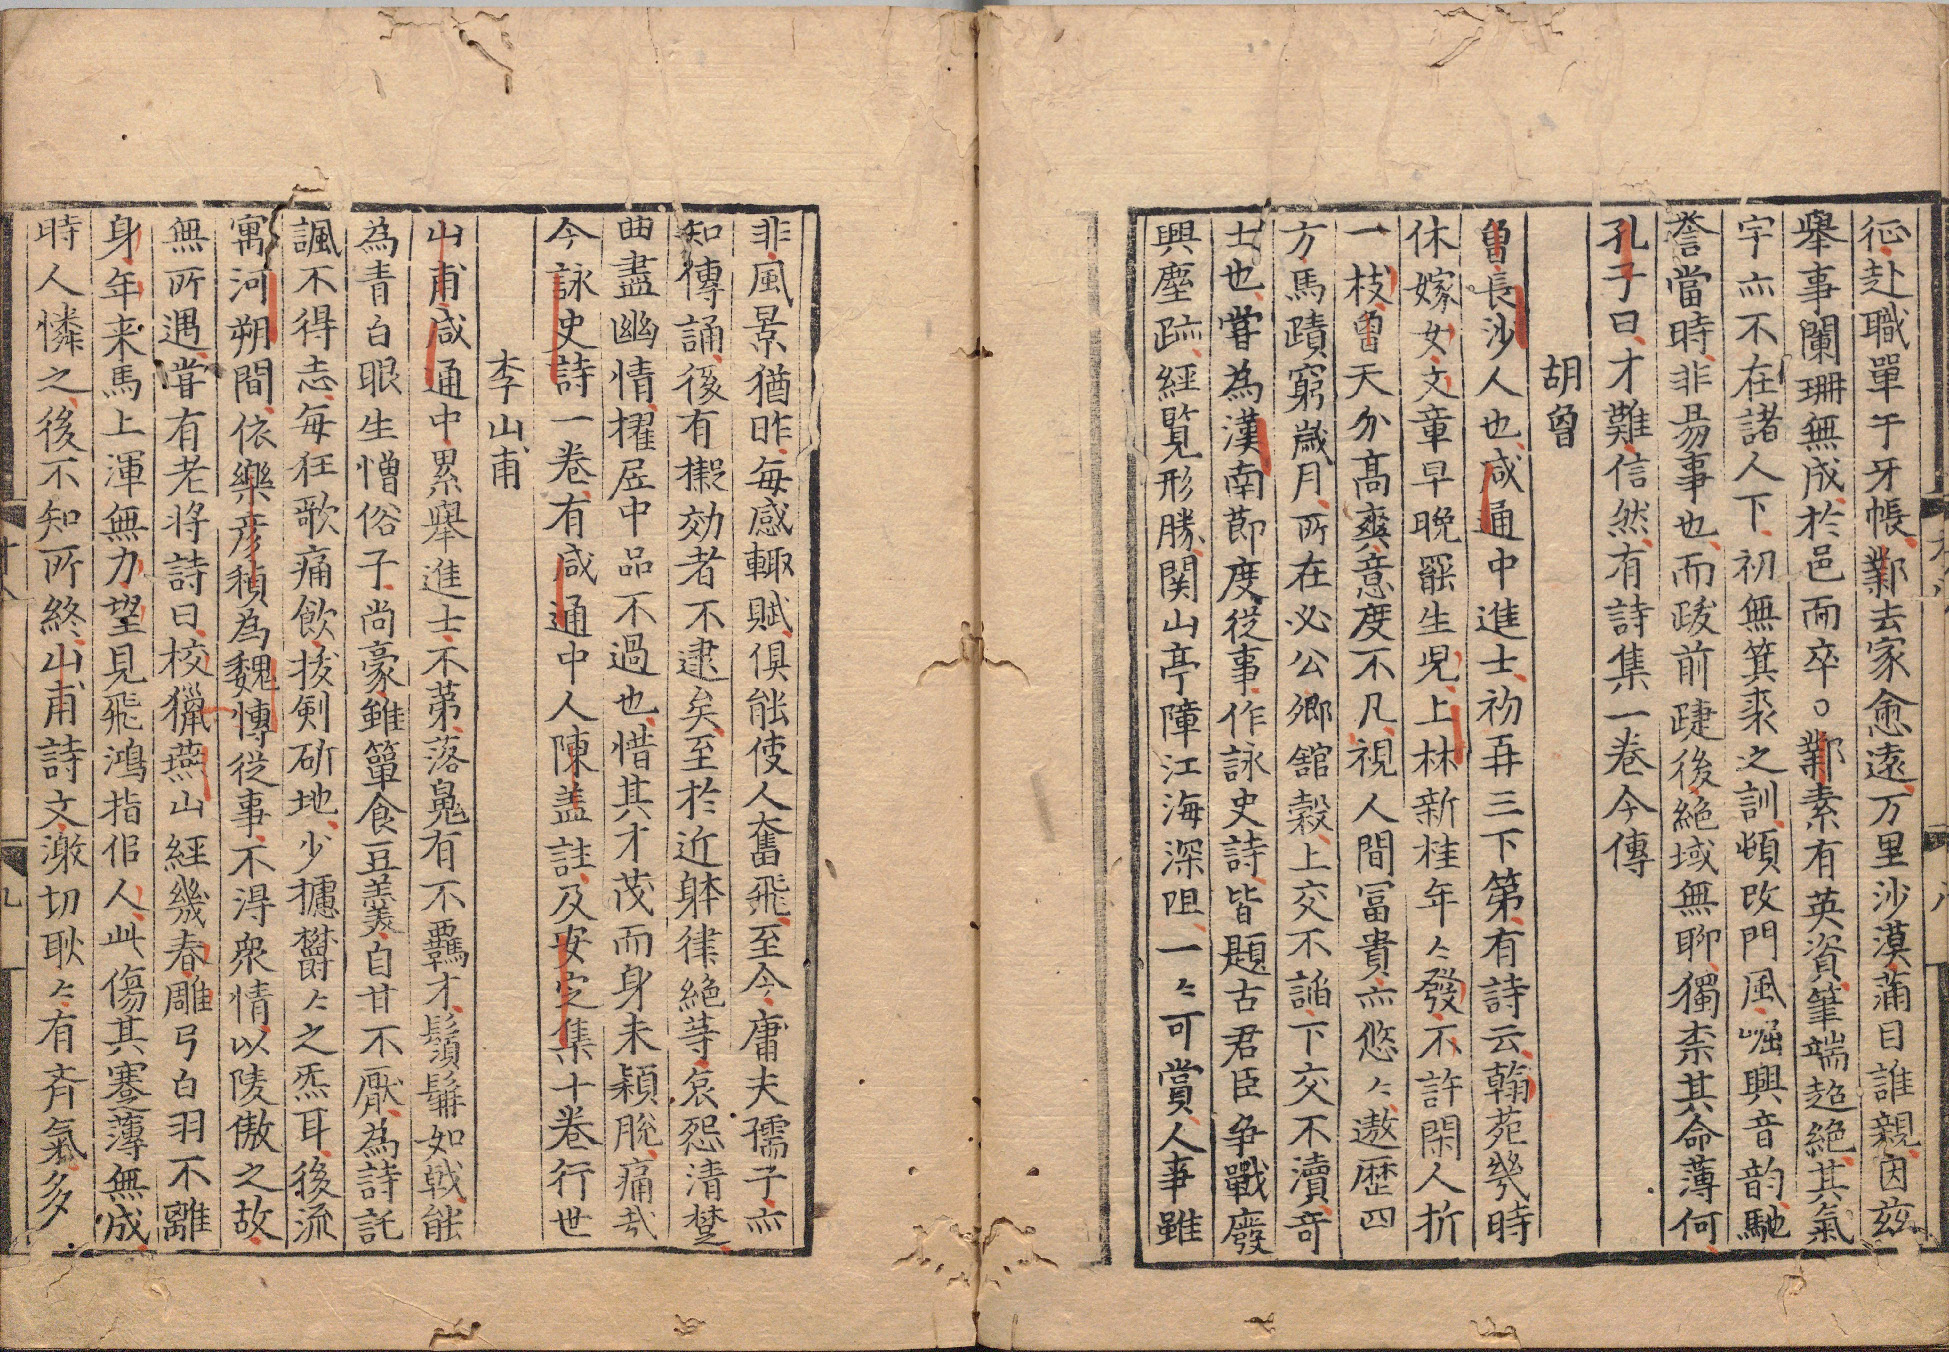 征赴職單于牙帳鄴去家愈遠万里沙漠蒲目誰親因兹
舉事闌珊無成於邑而卒○鄴素有英資筆端超絕其氣
宇亦不在諸人下初無箕裘之訓頓改門風崛興音韵馳
誉當時非易事也而跋前疐後絕域無聊獨柰其命薄何
孔子曰才難信然有詩集一卷今傳
胡曾
曾長沙人也咸通中進士初再三下第有詩云翰苑幾時
休嫁女文章早晚罷生児上林新桂年〻發不許閑人折
一枝曾天分高爽意度不凡視人間冨貴亦悠〻遨歴四
方馬蹟窮歲月所在必公卿舘穀上交不諂下交不瀆奇
士也甞為漢南節度從事作詠史詩皆題古君臣争戰廢
興塵跡經覧形勝関山亭障江海深阻一〻可賞人事雖
非風景猶昨毎感輒賦俱能使人奮飛至今庸夫孺子亦
知傳誦後有擬効者不逮矣至於近躰律絕等哀怨清楚
曲盡幽情擢居中品不過也惜其才茂而身未穎脫痛哉
今詠史詩一卷有咸通中人陳盖註及安定集十卷行世
李山甫
山甫咸通中累舉進士不第落魄有不羈才鬚髯如戟能
為青白眼生憎俗子尚豪雖簞食豆羹自甘不厭為詩託
諷不得志毎狂歌痛飲拔剣斫地少攄欝〻之炁耳後流
寓河朔間依樂彦稹為魏愽從事不得衆情以陵傲之故
無所遇甞有老将詩曰校獵燕山經幾春雕弓白羽不離
身年来馬上渾無力望見飛鴻指佀人此傷其蹇薄無成
時人憐之後不知所終山甫詩文激切耿〻有斉氣多